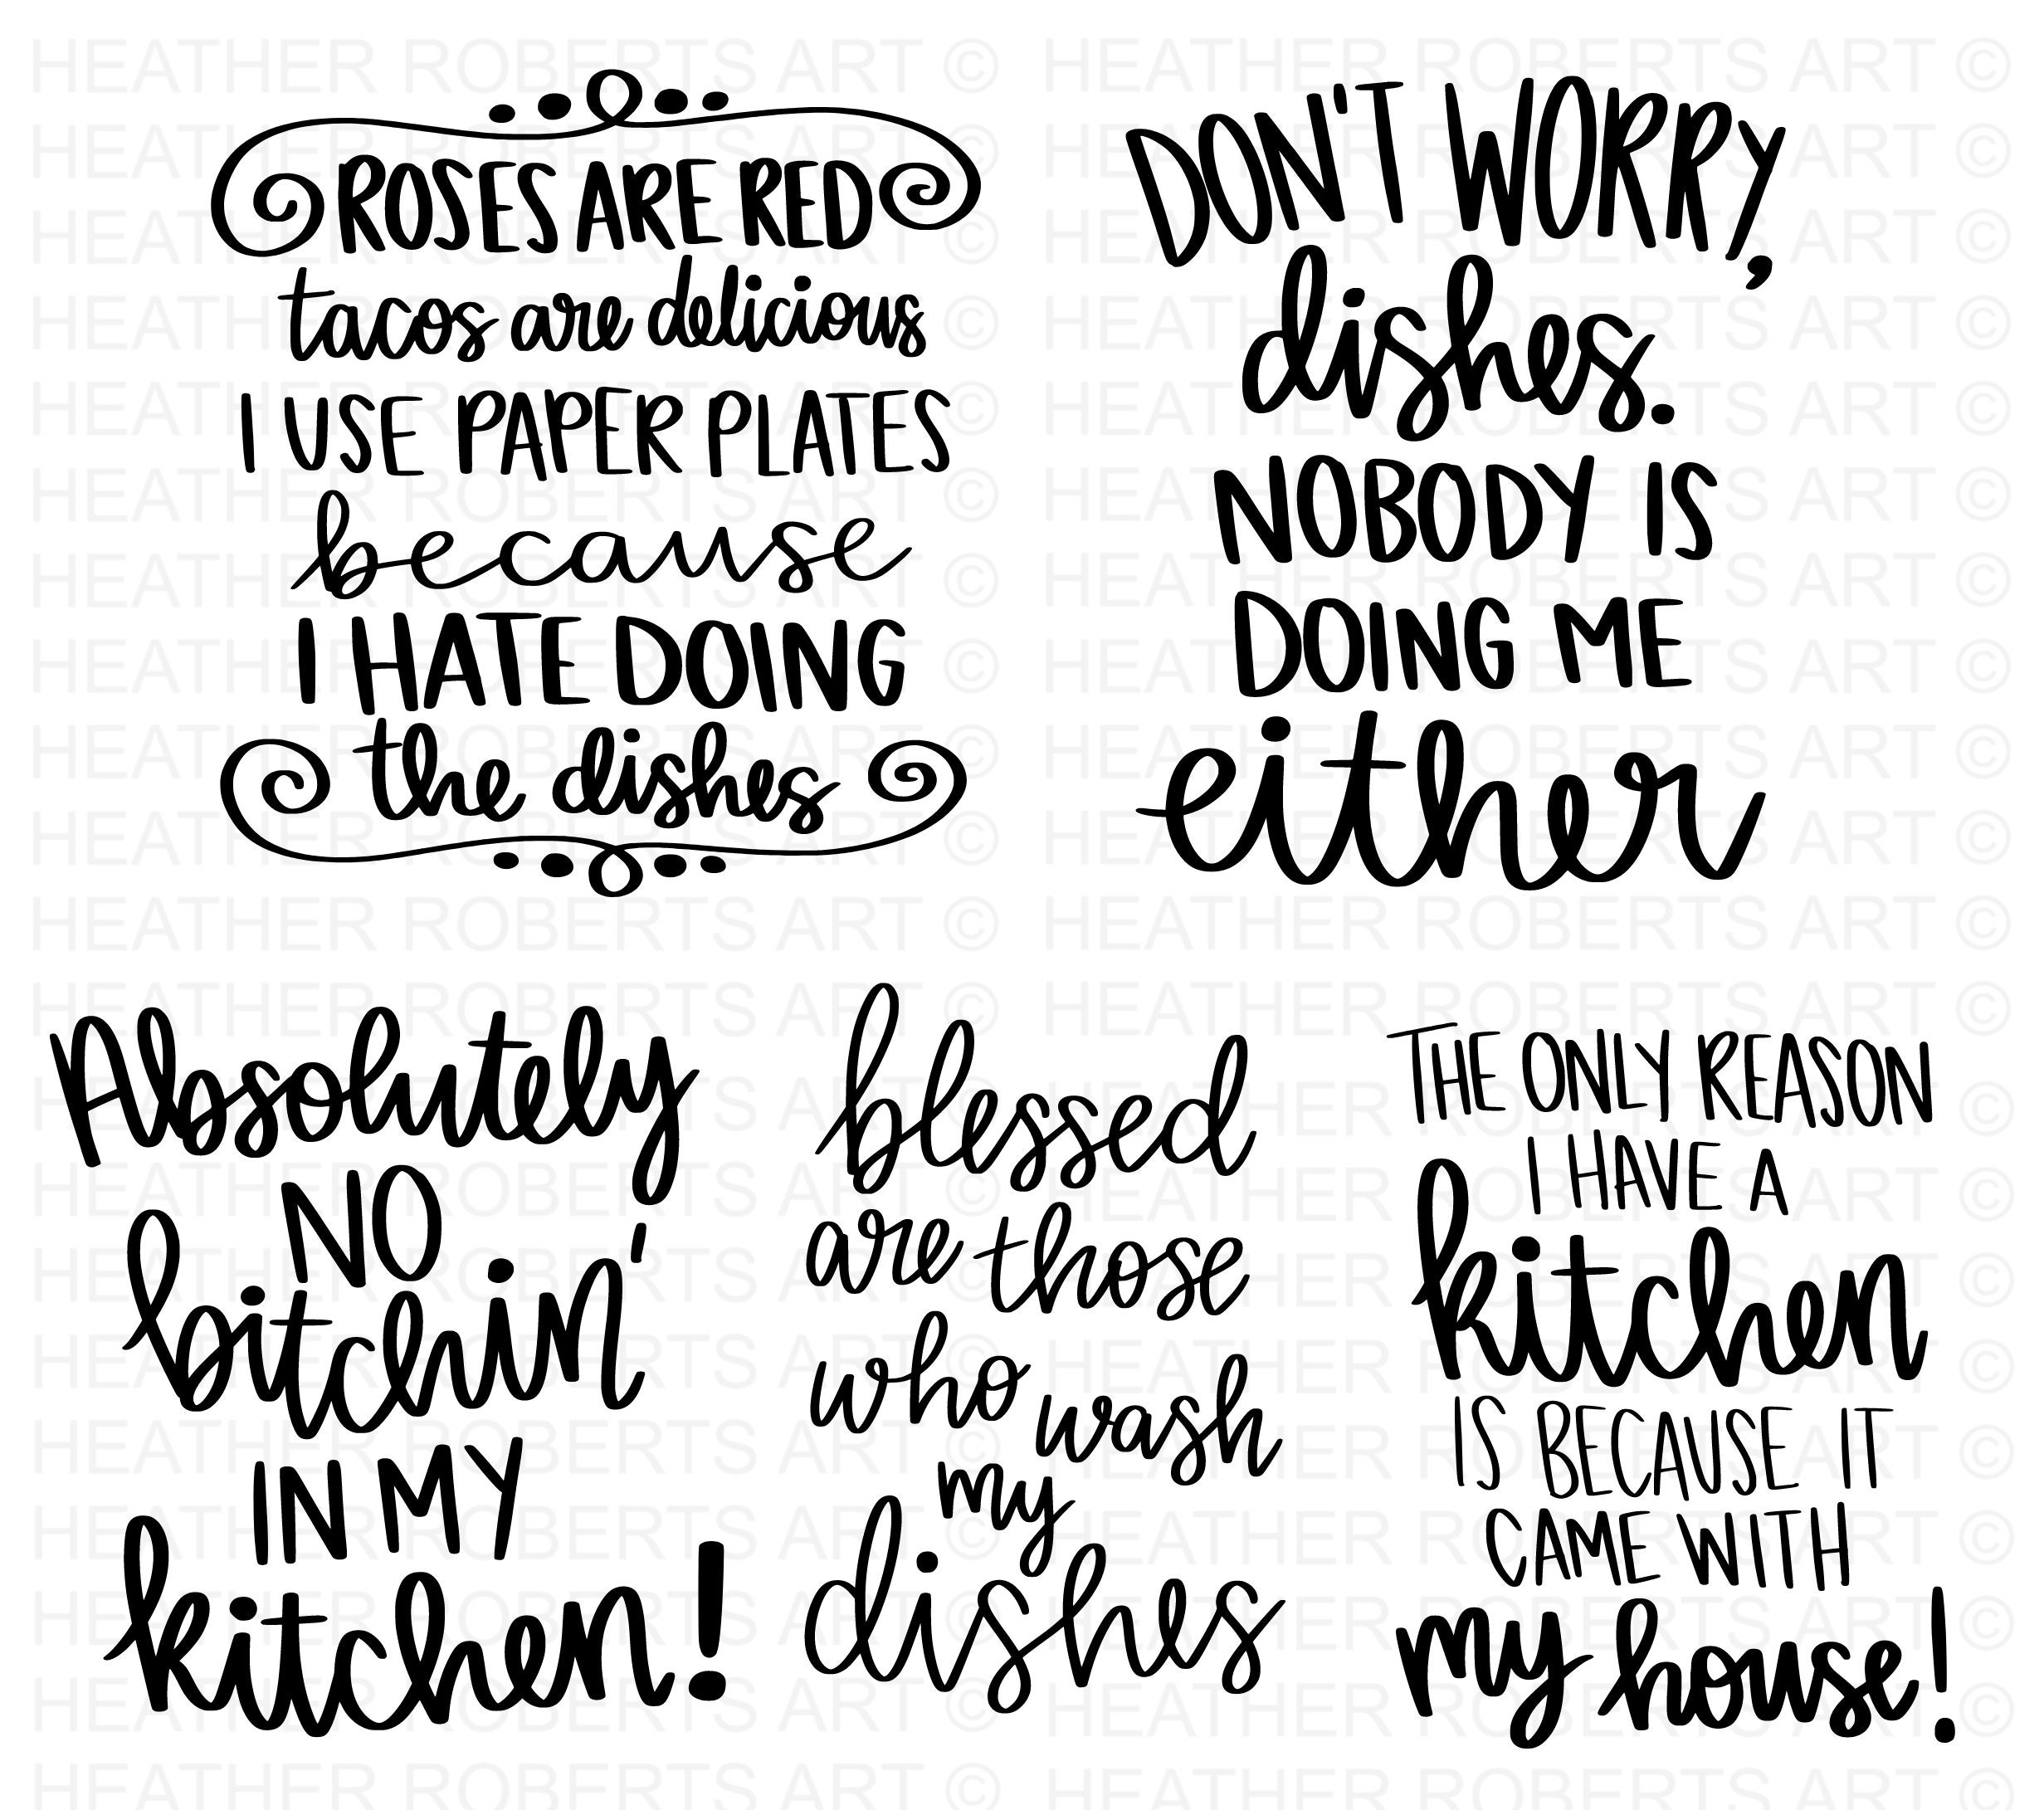 ROSES ARE RED
tacos are delicious
I USE PAPER PLATES
because
I HATE DOING
the dishes
DON'T WORRY,
dishes.
NOBODY IS
DOING ME
either
Absolutely
NO
bitchin'
IN MY
kitchen!
blessed
are those
who wash
my
dishes
THE ONLY REASON
I HAVE A
kitchen
IS BECAUSE IT
CAME WITH
my house!
HEATHER ROBERTS ART © HEATHER ROBERTS ART ©